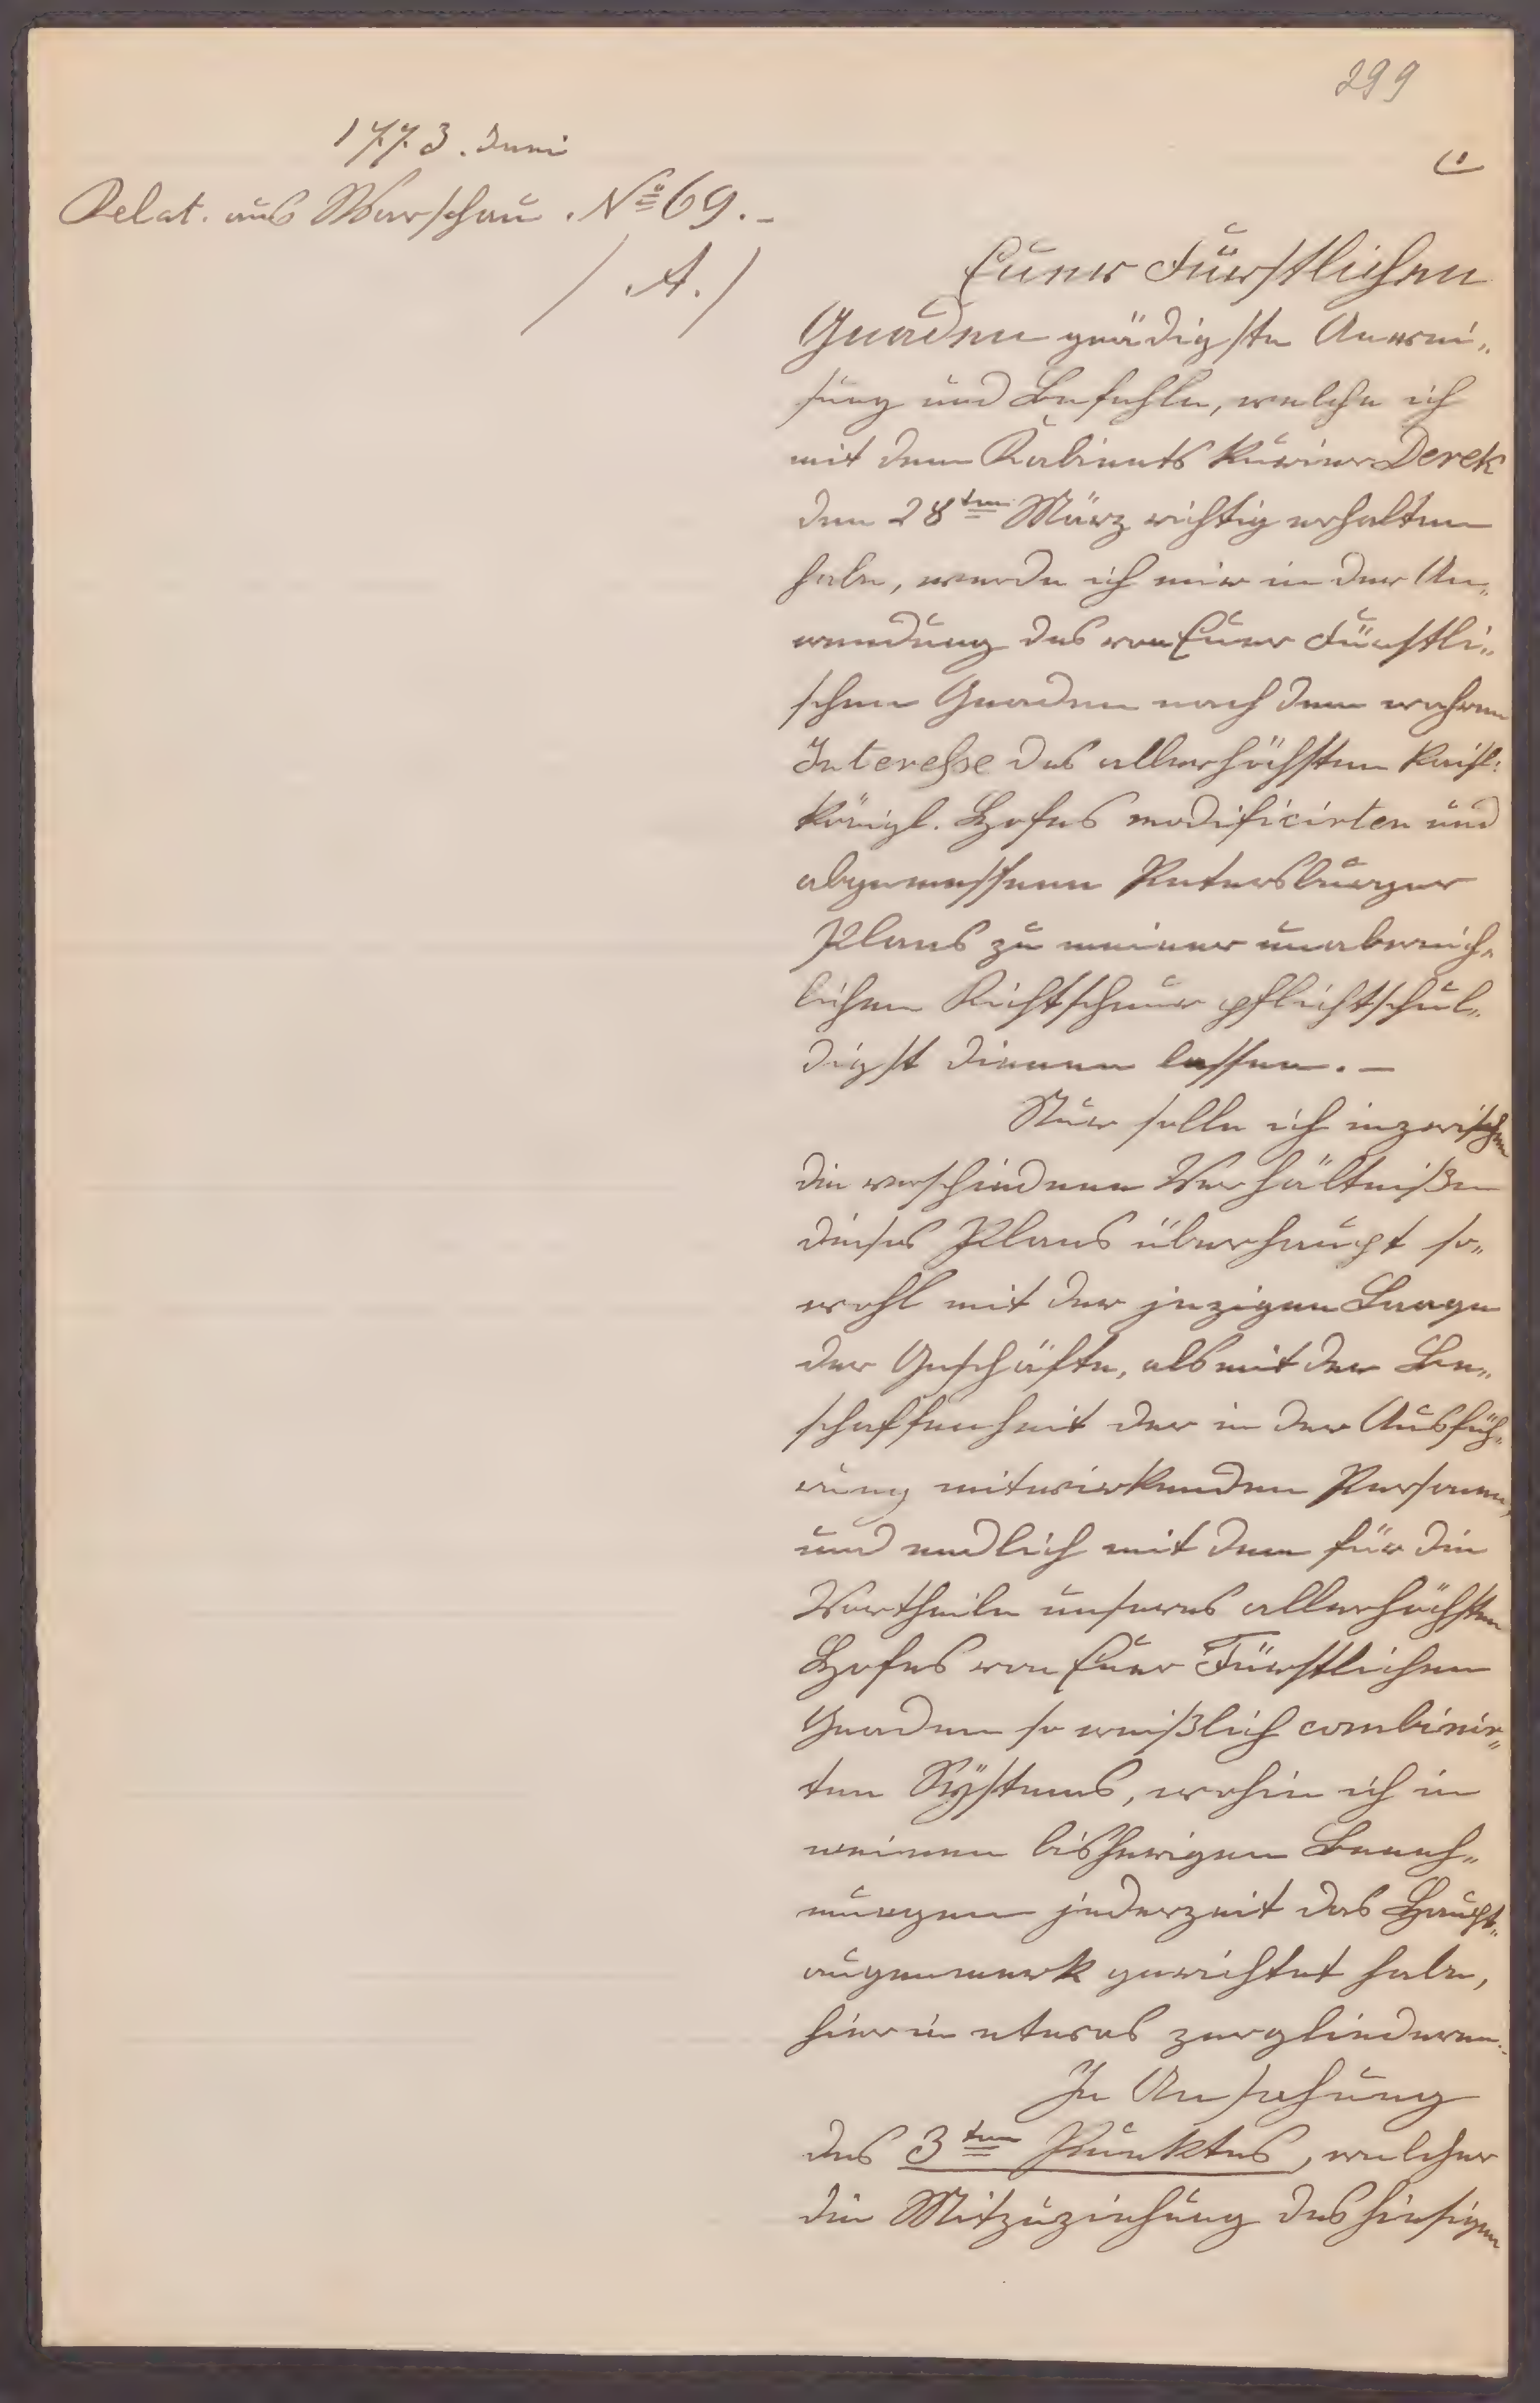 299
1773. Juni
Relat. aus Warschau. No 69.-
/ A. /
Euer Fürstlichen
Gnaden gnädigste Anwei„
sung und Befehle, welche ich
mit dem Kabinets Kurier Derek
den 28ten März richtig erhalten
habe, werde ich mir in der An„
wendung des von Euer Fürstli„
chen Gnaden nach dem wahren
Interesse des allerhöchsten Kaisl:
Königl. Hofes modificirten und
abgemessenen Petersburger
Plans zu meiner unabweich„
lichen Richtschnur pflichtschul„
digst dienen lassen. —
Nur solle ich inzwischen
die verschiedene Verhältnißen
dieses Plans überhaupt so„
wohl mit der jezigen Laage
der Geschäfte, als mit der Be„
schaffenheit der in der Ausfüh„
rung mitwirkenden Personen,
und endlich mit dem für die
Vortheile unseres allerhöchsten
Hofes von Euer Fürstlichen
Gnaden so weißlich combinir„
ten Systems, wohin ich in
meinen bisherigen Beneh„
mungen jederzeit das Haupt„
augenmerk gerichtet habe,
hierin etwas zergliederen.
In Ansehung
des 3ten Punktes, welcher
die Mitzuziehung des hiesigen